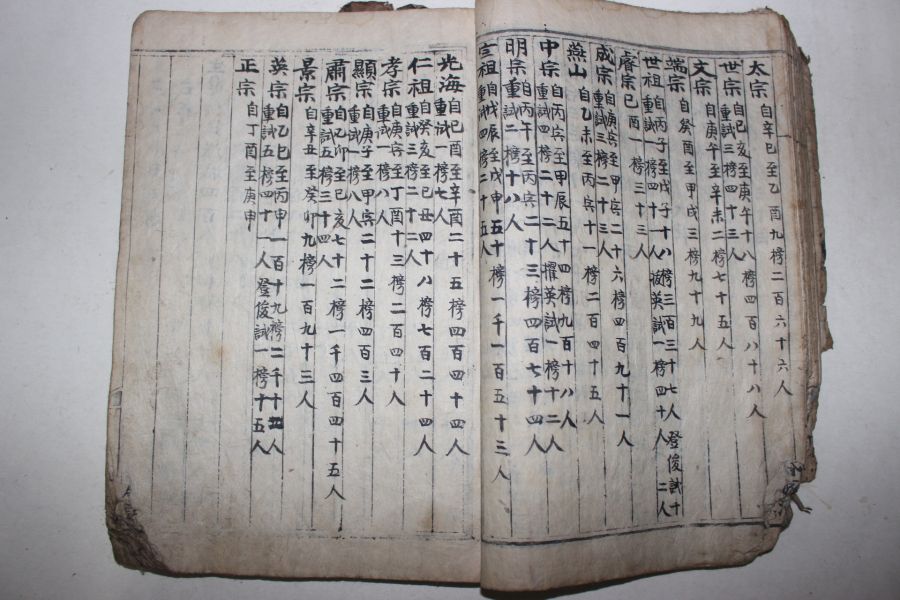 太宗 自辛巳至乙酉九榜二百六十六人
世宗 自己亥至庚午十八榜四百八十八人
重試三榜四十三人
文宗 自庚午至辛未二榜七十五人
端宗 自癸酉至甲戌三榜九十九人
世祖 自丙子至戊子十八榜三百三十七人 登俊試十二人
重試四榜四十一人 拔英試一榜四十人
睿宗 己丑
一榜三十三人
成宗 自庚寅至甲寅二十六榜四百九十一人
重試三榜二十三人
燕山 自乙未至丙寅十一榜二百四十五人
中宗 自丙寅至甲辰五十四榜九百十八人
重試四榜二十二人 擢英試一榜十二人
明宗 自丙午至丙寅二十三榜四百七十四人
重試二榜十八人
宣祖 自戊辰至戊申五十榜一千一百五十三人
重試四榜二十五人
光海 自己酉至辛酉二十五榜四百四十四人
重試一榜七人
仁祖 自癸亥至己丑四十八榜七百二十四人
重試三榜二十二人
孝宗 自庚寅至丁酉十三榜二百四十人
重試一榜八人
顯宗 自庚子至甲寅二十二榜四百三人
重試一榜八人
肅宗 自乙卯至己亥七十二榜一千四百四十五人
重試五榜三十四人
景宗 自辛丑至癸卯九榜一百九十三人
英宗 自乙巳至丙申一百十九榜二千十人
重試五榜四十一人 登俊試一榜十五人
正宗 自丁酉至庚申